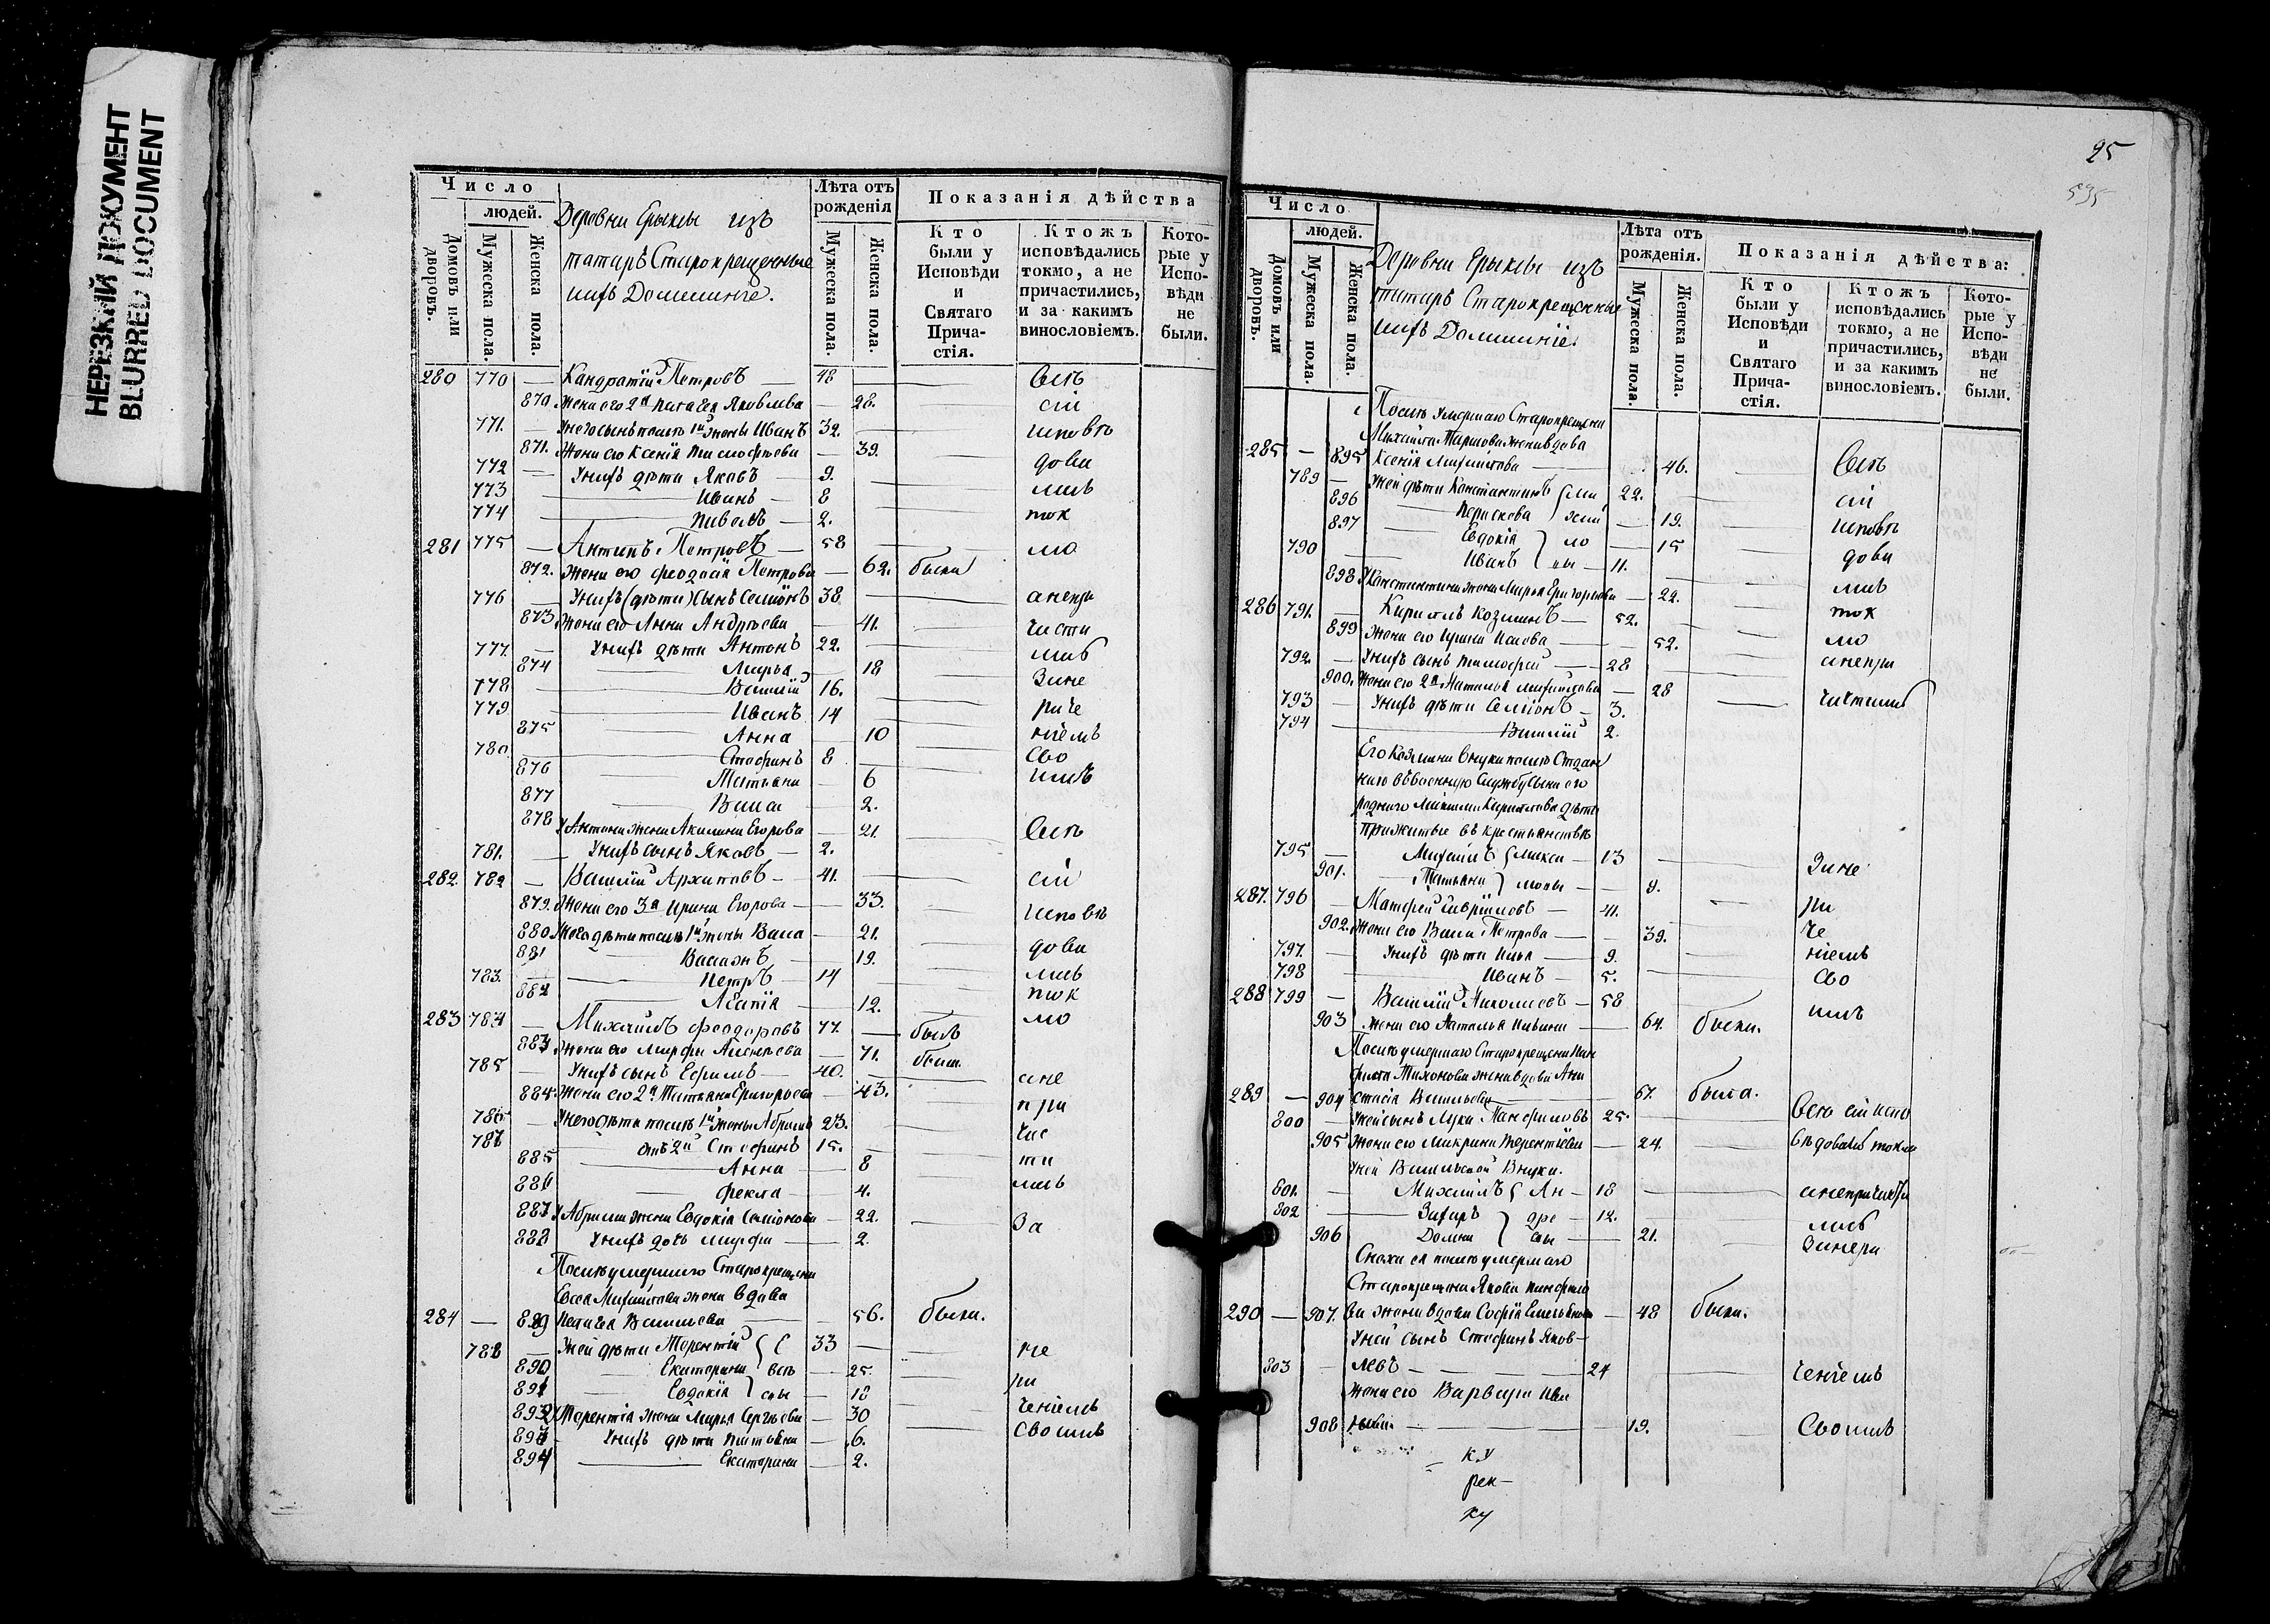 НЕРЕЗКИЙ ДОКУМЕНТ
BLURRED DOCUMENT
Число
людей.
Домовъ или дворовъ.
Мужеска пола.
Женска пола.
Деревни Ерыклы изъ
татаръ Старокрещенные
Лѣта отъ рожденія
Мужеска пола.
Женска пола.
Показанія дѣйства
Кто были у Исповѣди и Святаго Прича-стія.
Ктожъ исповѣдались токмо, а не причастились, и за какимъ винословіемъ.
Кото-рые у Испо-вѣди не были.
280 770 — Кандратій Петровъ — 48 — Всѣ
870 жена его 2я Яковлева — 28. — сіи
771. — Унего сынъ послѣ 1й жены Иванъ 32. — исповѣ
871. Жена его Ксенія — 39. дова
772 — Унихъ дѣти Яковъ — 9. лись
773 — Иванъ — 8 ток
774 — 2. мо
281 775 — Антипъ Петровъ — 58
872. жена его Феодосія Петрова — 62. была
776 — Унихъ (дѣти) сынъ Семіонъ 38 — а непри
873 Жена его Анна Андреева — 41. части
777. — Унихъ дѣти Антонъ 22. лись
874 — Марья — 18 За не
778 — Василій 16. раче
779 — Иванъ 14 ніемъ
875 — Анна — 10 сво
780 — Стефанъ 8 имъ
876 — Татьяна — 6
877 — Васса — 2.
878 У Антона жена Акилина Егорова — 21. Всѣ
781. — Унихъ сынъ Яковъ — 2.
282. 782 — Василій Архиповъ — 41. сіи
879. Жена его 3я Ирина Егорова — 33. исповѣ
880. Унего дѣти послѣ 1й жены Васса — 21. дова
881 — 19. лись
783. — Петръ — 14 ток
882 — Агапія — 12. мо
283 784 — Михаилъ Феодоровъ 77. — былъ
883 Жена его Марфа Алексѣева — 71. была
785 — Унихъ сынъ Ефимъ — 40. — а не
884. Жена его 2я Татьяна Григорьева — 43. при
786 — Унего дѣти послѣ 1й жены Абрамъ 23. час
787 — отъ 2й Стефанъ 15. ти
885 — Анна — 8 лись
886 — Фекла — 4.
887 У Абрама жена Евдокія Семіонова — 22. За
888 Унихъ дочь Марфа — 2.
Послѣ умершаго Старокрещена
Михайлова жена вдова
284 — 889 Пелагея Васильева — 56. была.
788 — Уней дѣти Терентій 33 — не
890 — Екатерина — 25. ра
891 — Евдокія — 18 ченіемъ
892 У Терентія жена Марья Сергѣева — 30 своимъ
893 Унихъ дѣти Татьяна — 6.
894 — Екатерина — 2.
25
595
Число
людей.
Домовъ или дворовъ.
Мужеска пола.
Женска пола.
Деревни Ерыклы изъ
татаръ Старокрещенные
Лѣта отъ рожденія.
Мужеска пола.
Женска пола.
Показанія дѣйства:
Кто были у Исповѣди и Святаго Прича-стія.
Ктожъ исповѣдались токмо, а не причастились, и за какимъ винословіемъ.
Кото-рые у Испо-вѣди не были.
Послѣ умершаго Старокрещена
Михайла жена вдова
285 — 895 Ксенія Михайлова — 46. — Всѣ
789 — Уней дѣти Константинъ 22. сіи
896 — Параскева — 19. исповѣ
897 — Евдокія — 15 дова
790 — Иванъ — 11. лись
898 У Константина жена Марья Григорьева — 22. ток
286 791. — Кирилъ Козминъ — 52. мо
899 Жена его Ирина — 52. а непри
792. — Унихъ сынъ Тимофей — 28
900. Жена его 2я Наталья Михайлова — 28 частились
793 — Унихъ дѣти Семіонъ — 3.
794 — Василій 2.
Его Козмина внуки послѣ отдан
наго въ военную службу сына его
роднаго Максима Кирилова дѣти
прижитые въ крестьянствѣ
795 — Михаилъ Макси — 13 За не
901. — Татьяна мовы — 9. ра
287. 796 — Матфей Гавриловъ — 41. че
902. Жена его Васса Петрова — 39. ніемъ
797. — Унихъ дѣти Илья — 9. сво
798 — Иванъ — 5. имъ
288 799 — Василій Николаевъ — 58
903 Жена его Наталья — 64. была.
Послѣ умершаго Старокрещена Пан
фила Тихонова жена вдова Ана
289 — 904 стасія Васильева — 67. была.
800 — Уней сынъ Лука Панфиловъ 25. Всѣ сіи испо
905 Жена его Макрина Терентіева — 24. вѣдовались токмо
Уней Васильевой внуки.
801. — Михаилъ Ан — 18 а непричасти
802 — Захаръ дре — 12. лись
906 — Домна вы — 21. За нера
Сноха ея послѣ умершаго
Старокрещена Якова Панфило
290 — 907. ва жена вдова Софія Емельянова — 48 была.
Уней сынъ Стефанъ Яков-
803 — левъ — 24 ченіемъ
Жена его Варвара Ива
908 нова — 19. Своимъ
ку
рек-
ку